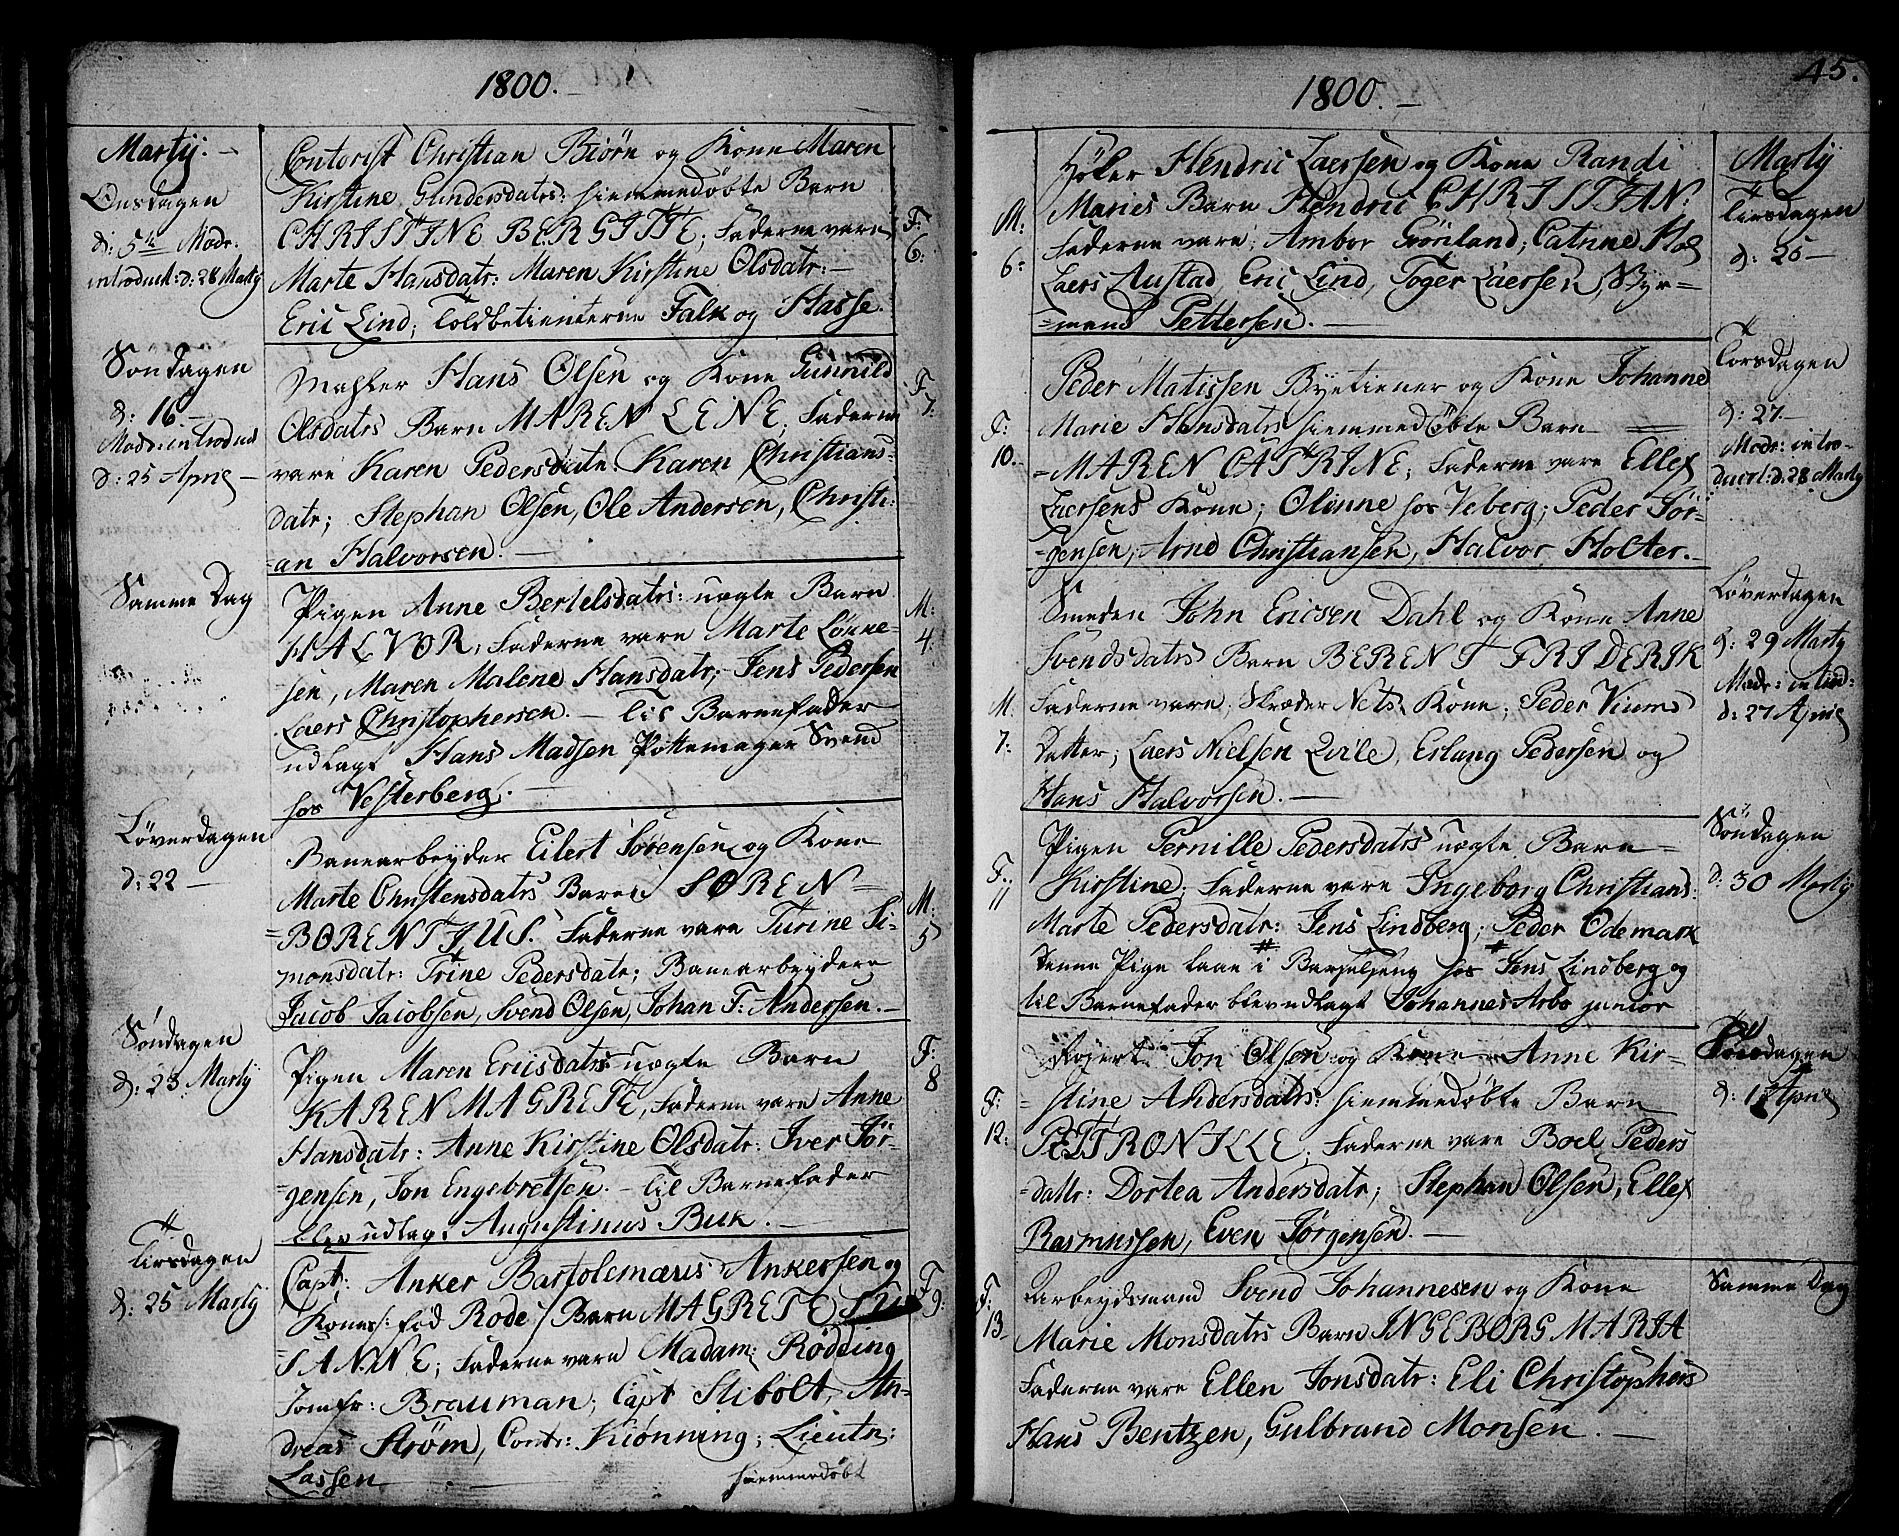 1800.
Martij.
Onsdagen
d: 5te Modr.
introduct: d: 28 Martij
Contorist Christian Biørn og Kone Maren
Kirstine Gundersdatrs: hiemmedøbte Barn
CHRISTINE BERGITTE; Fadderne vare
Marte Hansdatr: Maren Kirstine Olsdatr:
Eric Lind; Toldbetienterne Falk og Hasse.
F:
6:
Søndagen
d: 16
Modr: introduct
d: 25 April
Mahler Hans Olsen og Kone Gunnild
Olsdatrs Barn MAREN LENE; Fadderne
vare Karen Pedersdatr, Karen Christians-
datr; Stephan Olsen, Ole Andersen, Christi-
=an Halvorsen.
F
7:
Samme Dag
Pigen Anne Bertelsdatrs: uægte Barn
HALVOR, Fadderne vare Marte Lønne-
sen, Maren Malene Hansdatr; Jens Pedersen
Laers Christophersen. Til Barnefader
udlagt Hans Madsen Pottemager Svend
hos Vesterberg.
M:
4:
Løverdagen
d: 22
Banearbeyder Eilert Sørensen og Kone
Marte Christensdatrs Barn SØREN
=BØRENTIUS. Fadderne vare Turine Si-
monsdatr: Trine Pedersdatr; Banearbeydere
Jacob Jacobsen, Svend Olsen, Johan F: Andersen.
M:
5
Søndagen
d: 23 Martij
Pigen Maren Ericsdatrs uægte Barn
KAREN MAGRETE, Fadderne vare Anne
Hansdatr: Anne Kirstine Olsdatr: Iver Jør-
=gensen, Jon Engebretsen. Til Barnefader
blev udlagt Augustinus Buk.
F:
8
Tirsdagen
d: 25 Martij
Capt: Anker Bartolemæus Ankersen og
Kones: fød Rode/ Barn MAGRETE SU
SANNE; Fadderne vare Madam: Rødding
Jomfr: Brauman; Capt Stibolt, An-
dreas Strøm, Contr: Kiønning; Lieutn:
Lassen
hiemmedøbt
F
9:
1800.
45.
Martij
Tirsdagen
d: 25
M:
6:
Høker Hendric Laersen og Kone Randi
Maries Barn Hendric CHRISTIAN:
Fadderne vare; Ambor Grønland; Catrine Hos
Laers Austad, Eric Lind, Toger Laersen, Styr=
=mand Pettersen.
Torsdagen
d: 27
Modr: intro-
ducrt: d: 28 Martij
F:
10.
Peder Matissen Byetiener og Kone Johanne
Marie Hansdatrs hiemmedøbte Barn
=MAREN CATRINE; Fadderne vare Ellef
Laersens Kone; Olinne hos Veberg; Peder Jør-
=gensen, Arne Christiansen, Halvor Holter.
Løverdagen
d: 29 Martij
Modr: introd:
d: 27 April
M.
7:
Smeden John Ericsen Dahl og Kone Anne
Svendsdatrs Barn BERENT FRIDERIK
Fadderne vare, Skræder Nets Kone; Peder Viums
Datter; Laers Nielsen Qvile, Erlang Pedersen og
Hans Halvorsen.
Søndagen
d: 30 Martij
F:
11
Pigen Pernille Pedersdatrs uægte Barn
Kirstine; Fadderne vare Ingeborg Christians:
Marte Pedersdatr: Jens Lindberg; Peder Odemark
Denne Pige laae i Barselseng hos Jens Lindberg og
til Barnefader blev udlagt Johannes Arbo junior
dagen
d: 1 April
F:
12:
Jon Olsen og Kone Anne Kir-
=stine Andersdatrs: hiemmedøbte Barn
PETRONILLE; Fadderne vare Boel Peders
=datr: Dortea Andersdatr; Stephan Olsen, Ellef
Rasmussen, Even Jørgensen.
Samme Dag
F:
13
Arbeydsmand Svend Johannesen og Kone
Marie Monsdatrs Barn INGEBORG MARIA
Fadderne vare Ellen Jonsdatr: Eli Christophers
Hans Bentzen, Gulbrand Monsen.